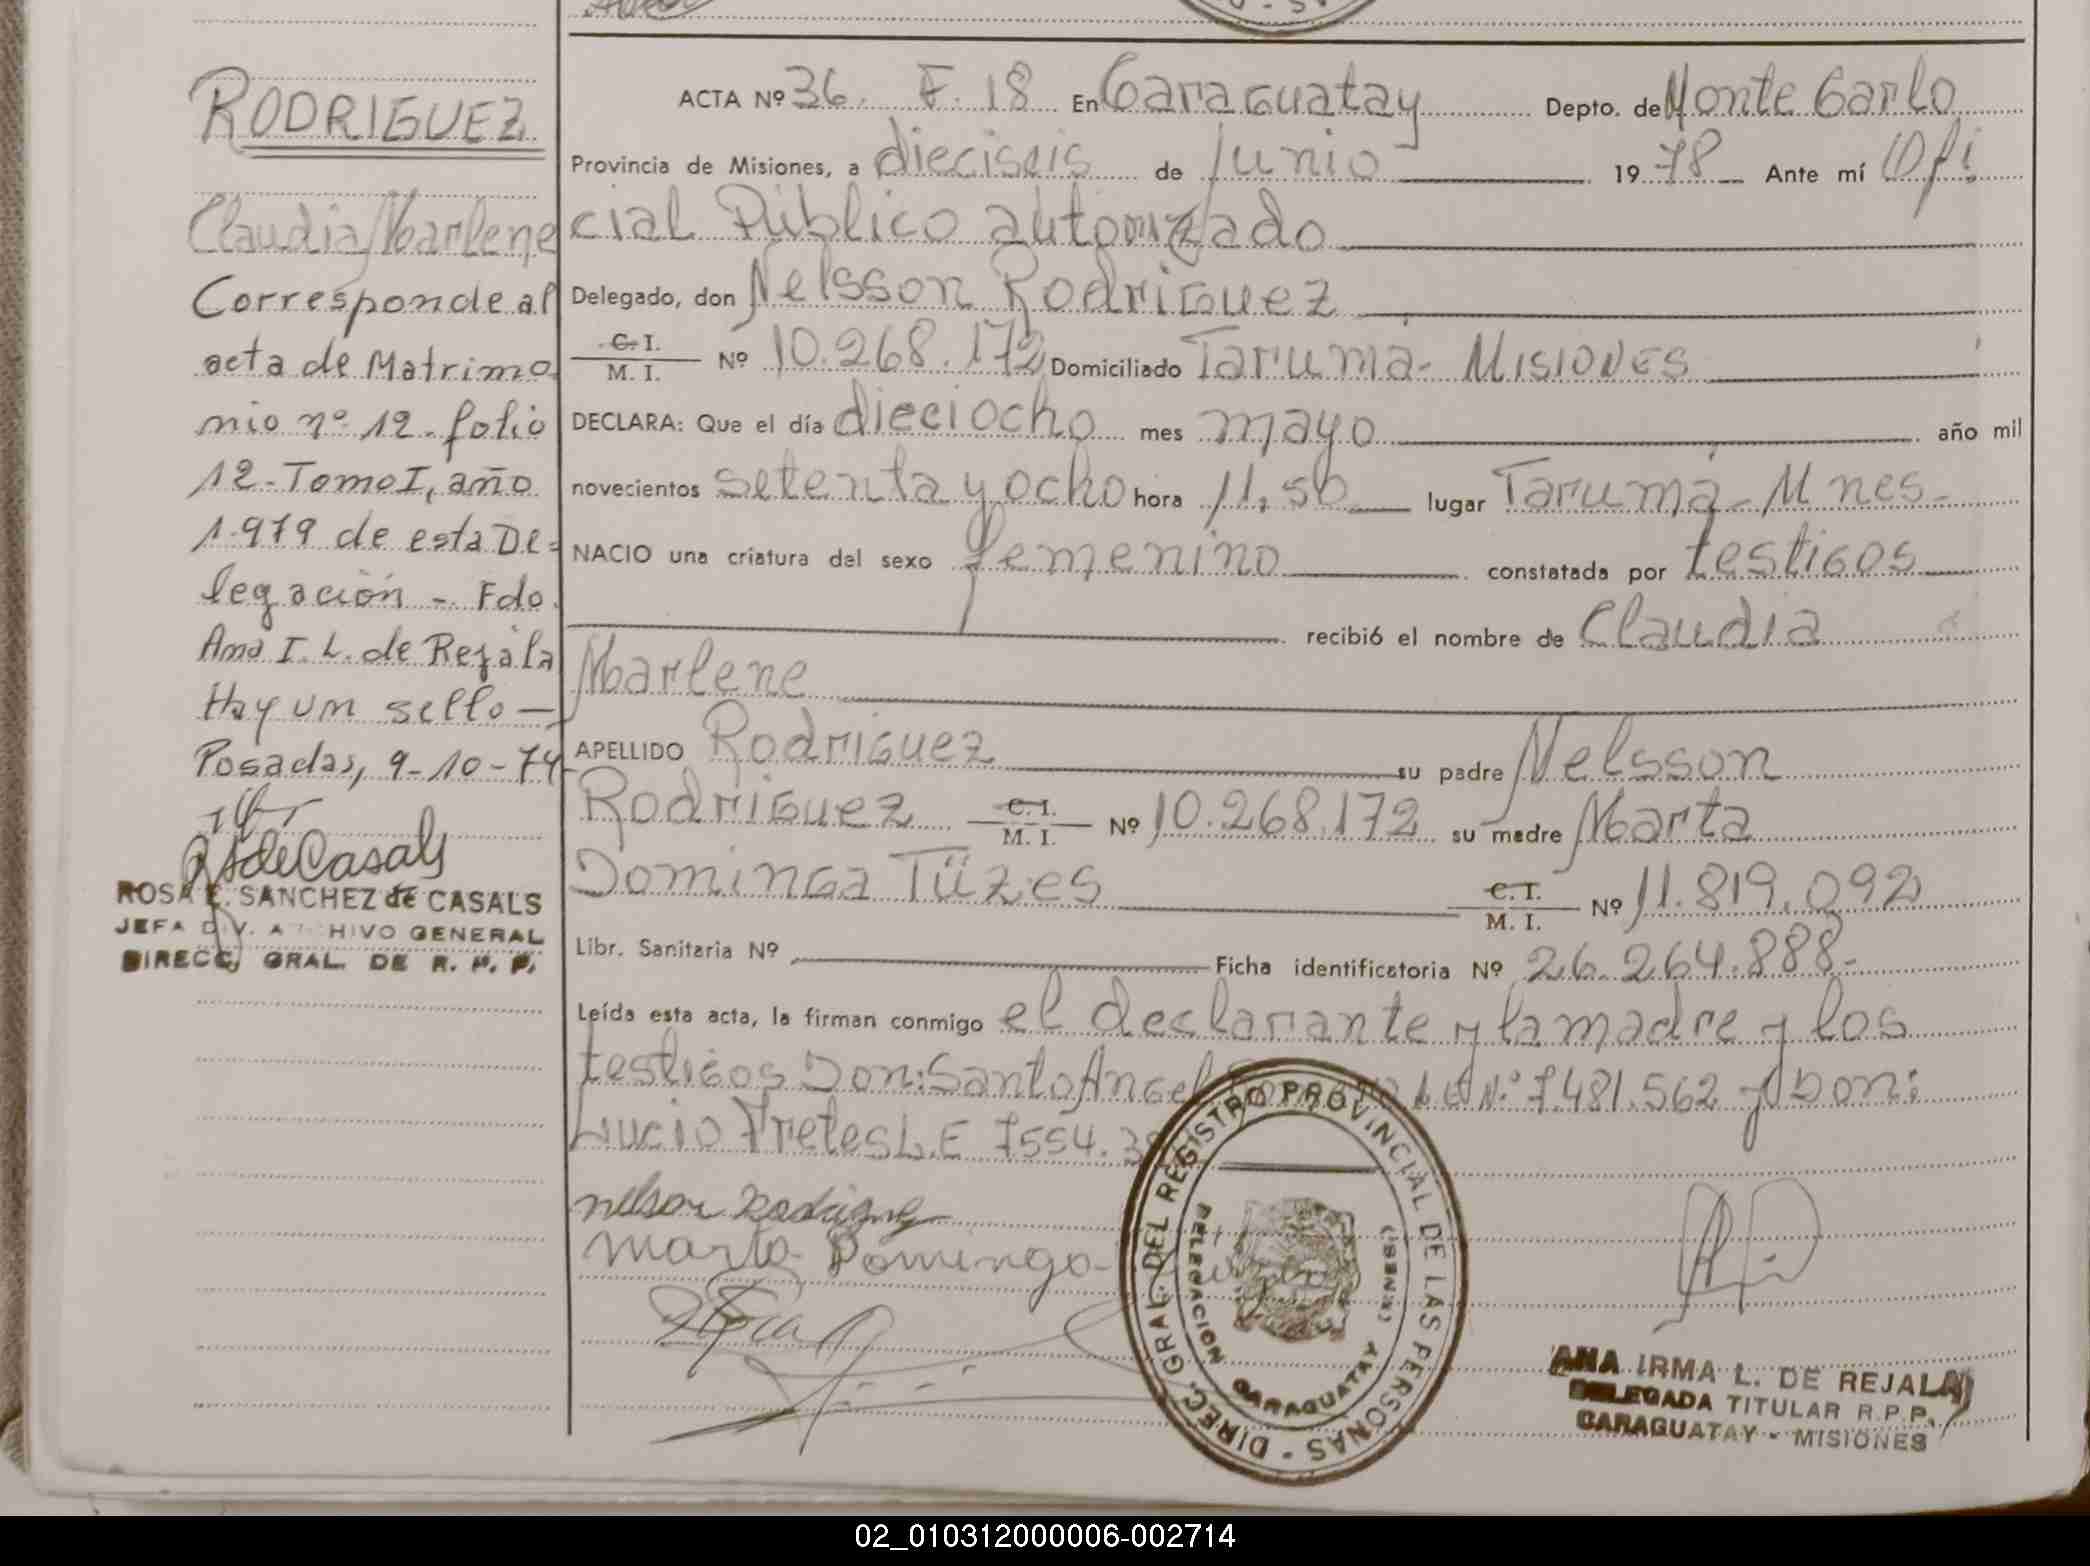 RODRIGUEZ
Claudia Marlene
Corresponde al
acta de Matrimo
nio nº 12. folio
12-Tomo I, año
1.979 de esta De=
legación - Fdo.
Ana I. L. de Rejala
Hay un sello —
Posadas, 9-10-74
ROSA E. SANCHEZ de CASALS
JEFA DIV. ARCHIVO GENERAL
DIRECC. GRAL. DE R. P. P.
ACTA Nº 36. F. 18 En Caraguatay Depto. de Monte Carlo
Provincia de Misiones, a dieciseis de Junio 19 78 Ante mí Ofi
cial Público autorizado
Delegado, don Nelsson Rodriguez
C. I. / M. I. Nº 10.268.172 Domiciliado Tarumá - Misiones
DECLARA: Que el día dieciocho mes mayo año mil
novecientos setenta y ocho hora 11,50 lugar Tarumá - Mnes -
NACIO una criatura del sexo femenino constatada por testigos
recibió el nombre de Claudia
Marlene
APELLIDO Rodriguez su padre Nelsson
Rodriguez C. I. / M. I. Nº 10.268.172 su madre Marta
Dominga Tüzes C. I. / M. I. Nº 11.819.092
Libr. Sanitaria Nº Ficha identificatoria Nº 26.264.888-
Leída esta acta, la firman conmigo el declarante y la madre y los
testigos Don: Santo Angel Nº 7.481.562 y Don:
Lucio Fretes L.E 7554.3
nelson Rodrigue
Marta Dominga
DIREC. GRAL. DEL REGISTRO PROVINCIAL DE LAS PERSONAS -
DELEGACION CARAGUATAY
ANA IRMA L. DE REJALA
DELEGADA TITULAR R.P.P.
CARAGUATAY - MISIONES
02_010312000006-002714